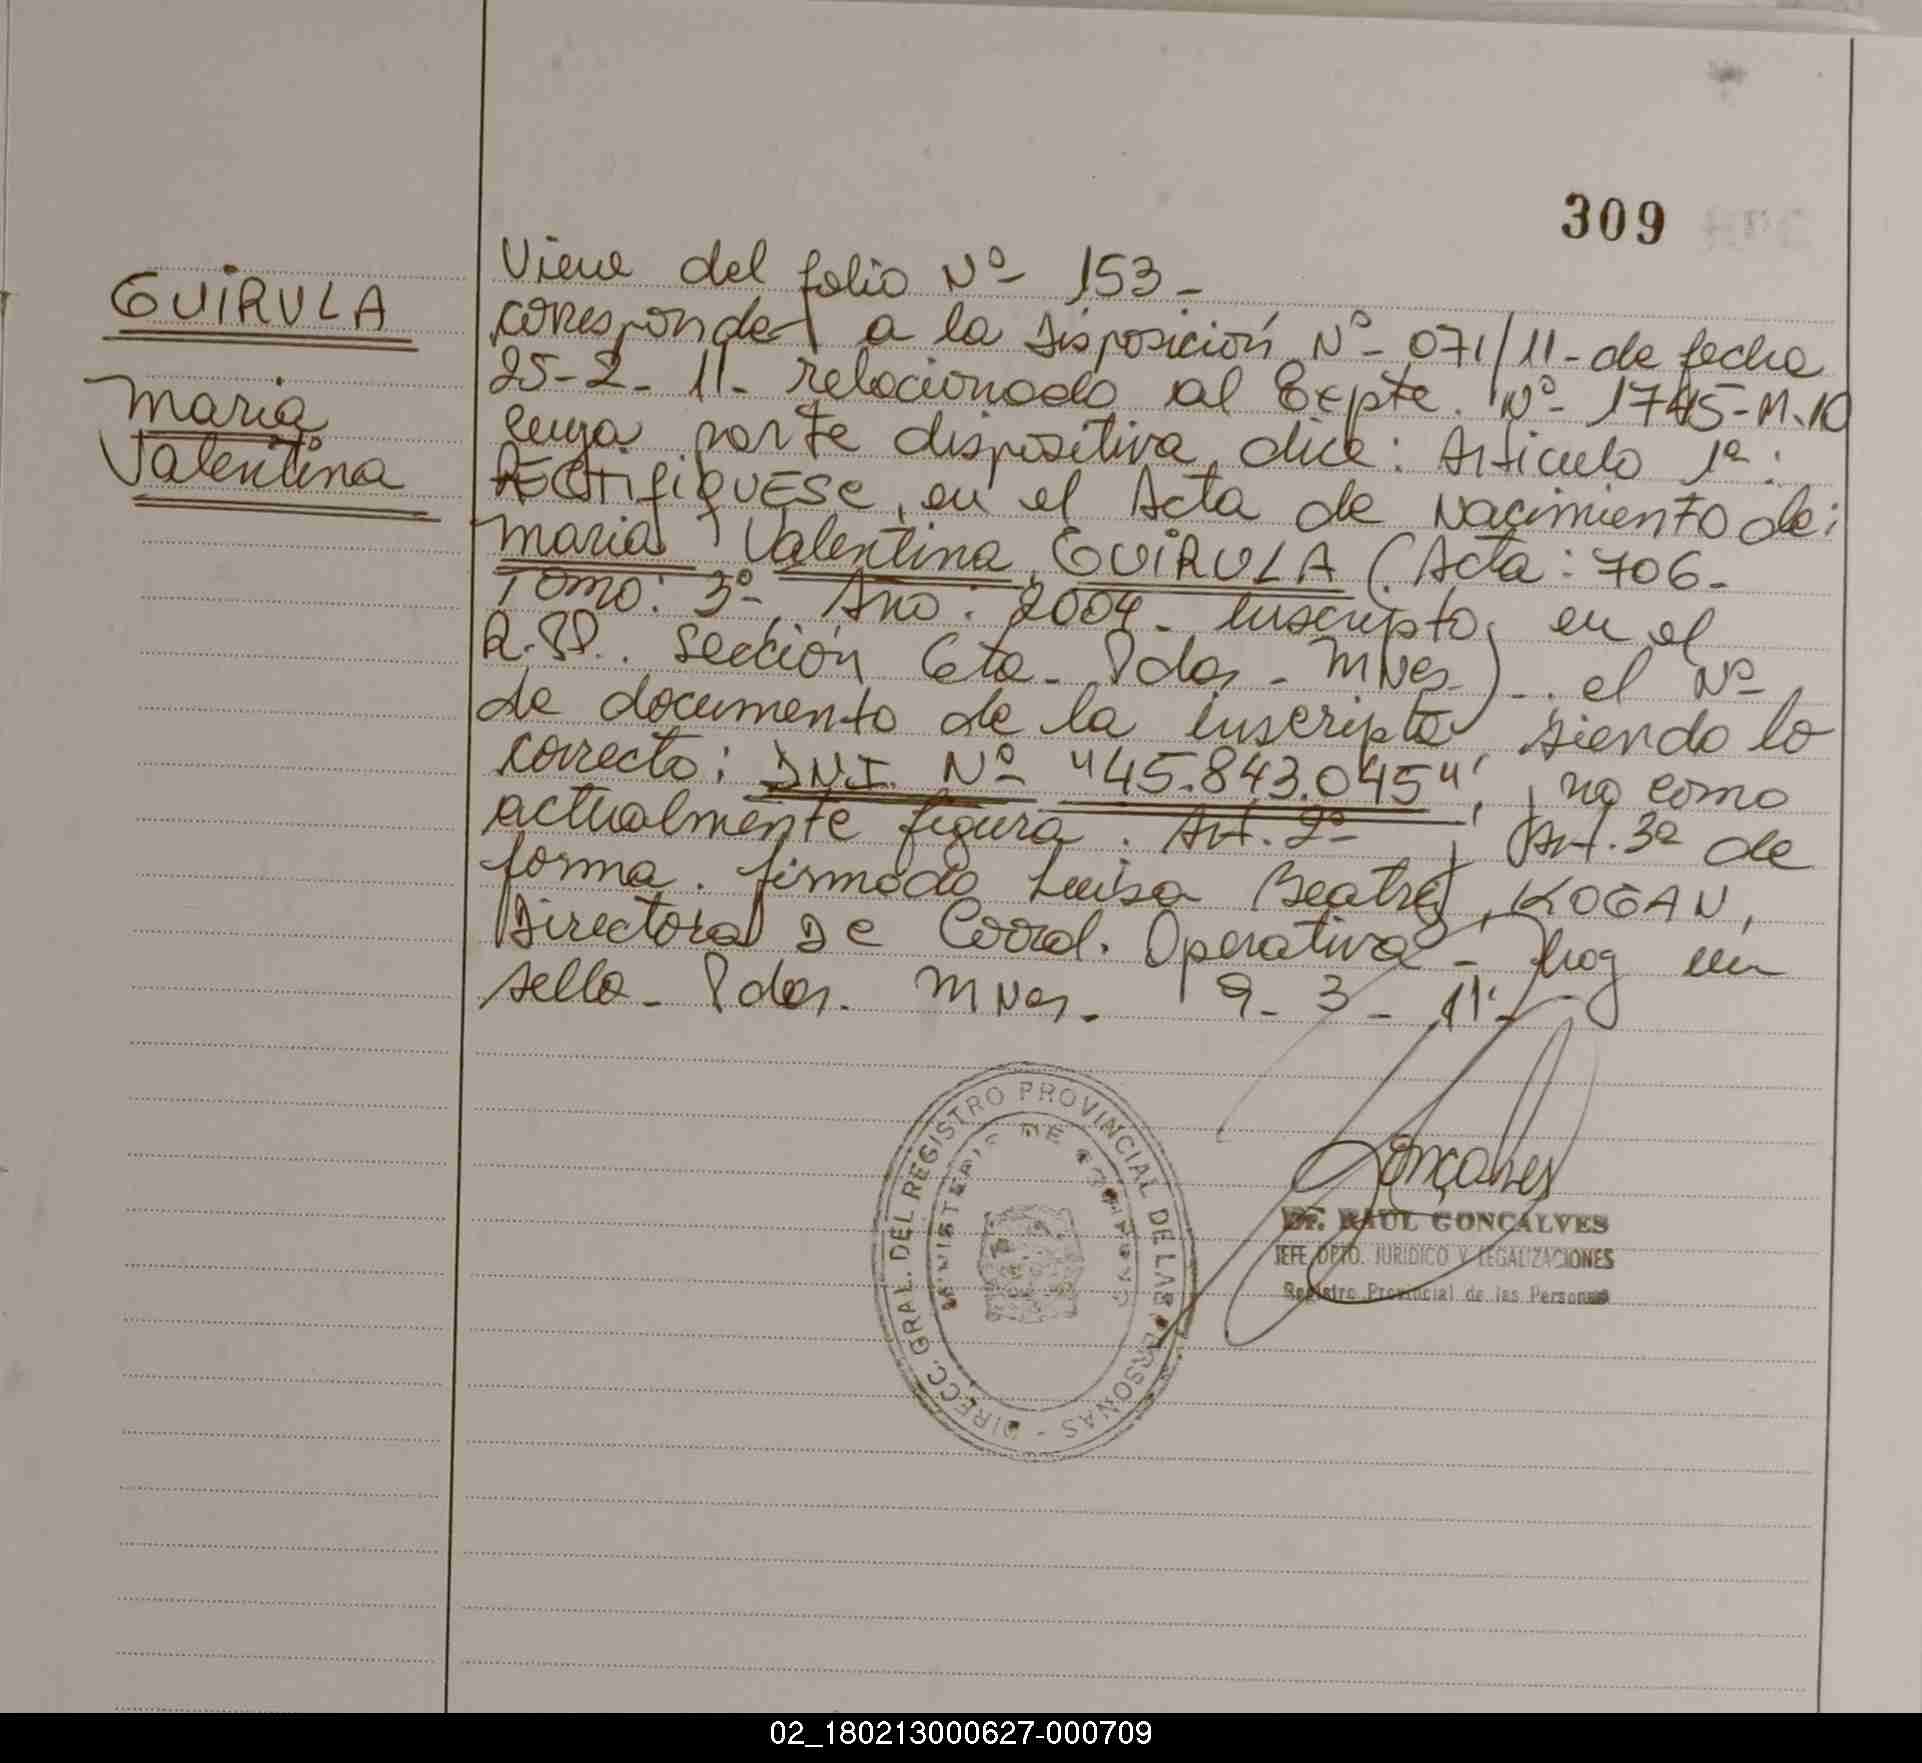 309
GUIRULA
Maria
Valentina
Viene del folio Nº 153-
corresponde a la Disposición Nº 071/11- de fecha
25-2-11- relacionado al Expte. Nº 1745-M-10
cuya parte dispositiva dice: Articulo 1º:
RECTIFIQUESE, en el Acta de Nacimiento de:
Maria Valentina GUIRULA (Acta: 706-
Tomo: 3º- Año: 2004- Inscripta en el
R.PP. Sección 6ta- Pdas- Mnes)-. el Nº
de documento de la inscripta, siendo lo
correcto: DNI. Nº "45.843.045"; no como
actualmente figura. Art. 2º y Art. 3º de
forma. firmado Luisa Beatriz KOGAN,
Directora De Coord. Operativa- hay un
sello- Pdas. Mnes. 9-3-11-
DIRECC. GRAL. DEL REGISTRO PROVINCIAL DE LAS PERSONAS -
MINISTERIO DE GOBIERNO
Gonçalves
Dr. RAUL GONCALVES
JEFE DPTO. JURIDICO Y LEGALIZACIONES
Registro Provincial de las Personas
02_180213000627-000709